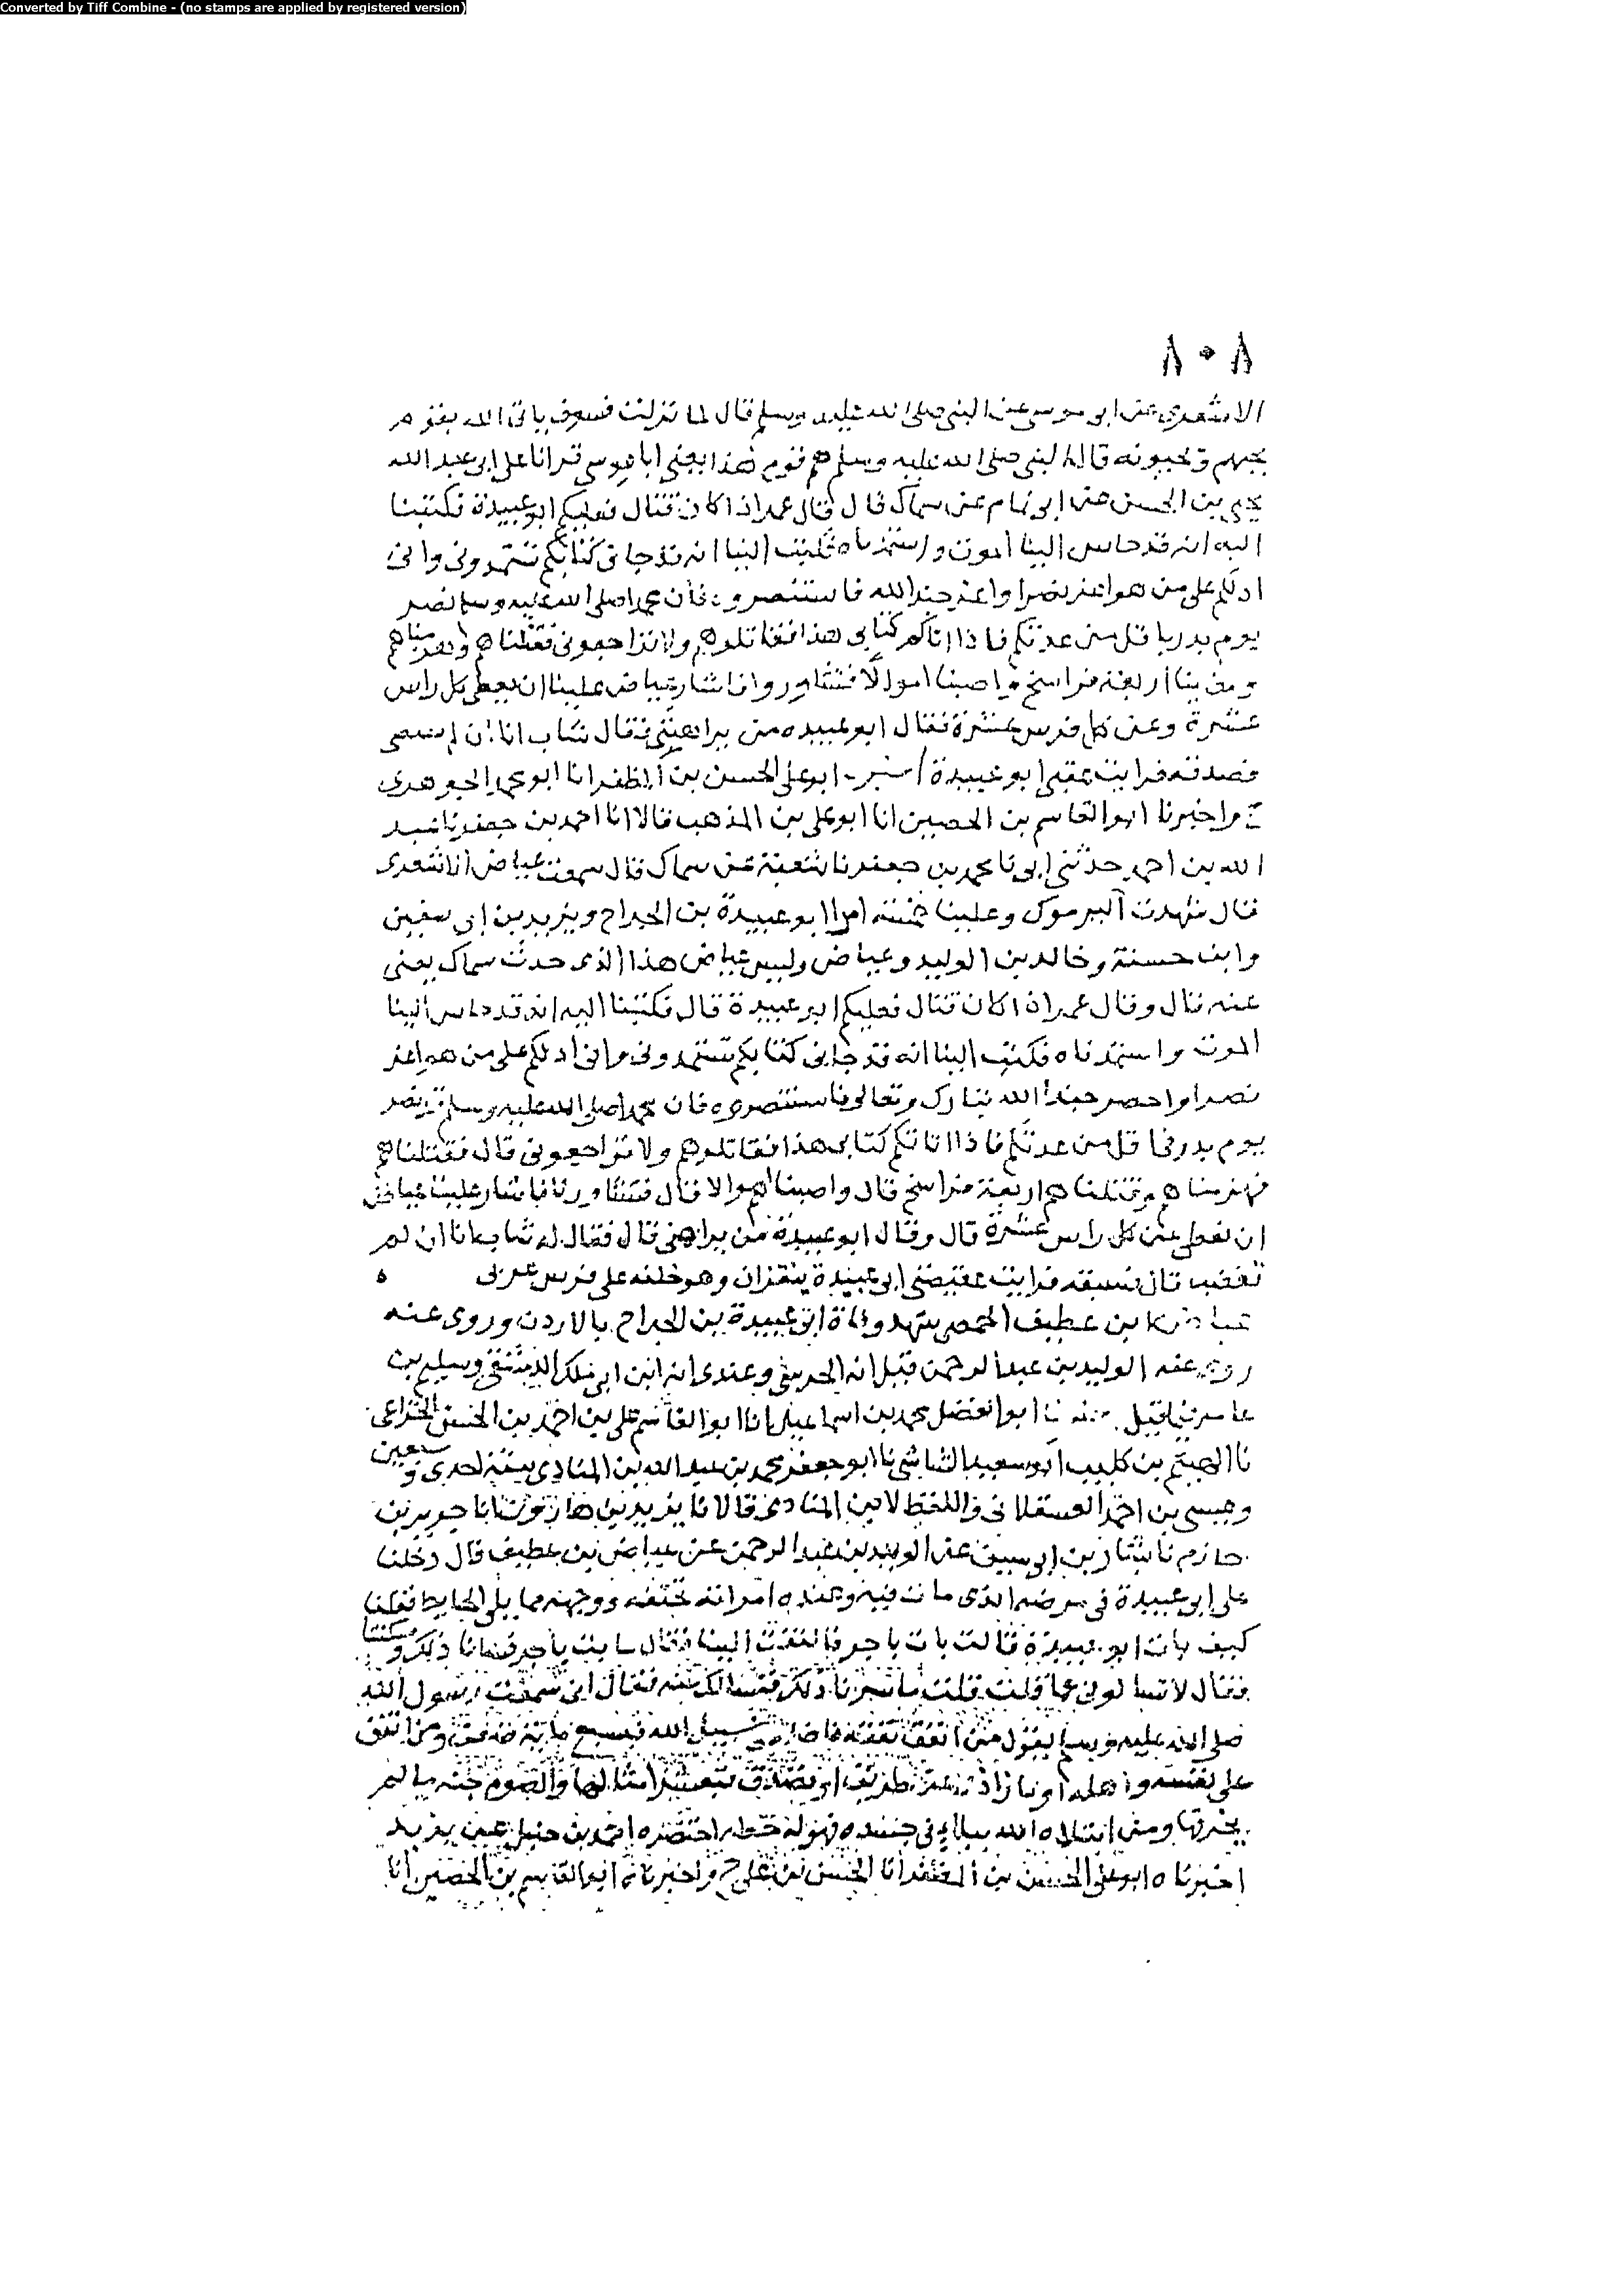 Converted by Tiff Combine - (no stamps are applied by registered version)
٨٠٨
الاشعري عن ابى موسى عن النبى صلى الله عليه وسلم قال لما نزلت فسوف ياتى الله بقوم
يحبهم ويحبونه قال النبى صلى الله عليه وسلم هم قوم هذا يعنى ابا موسى قرانا على ابى عبد الله
يحيى بن الحسن عن ابى تمام عن سماك قال قال عمر اذا كان قتال فعليكم ابو عبيدة فكتبنا
اليه انه قد جاس الينا الموت واستمدناه فكتب الينا انه قد جانى كتابكم تستمدونى وانى
ادلكم على من هو اعز نصرا واعز جندا الله فاستنصروه فان محمدا صلى الله عليه وسلم نصر
يوم بدر باقل من عدتكم فاذا اتاكم كتابى هذا فقاتلوهم ولا تراجعونى فقتلناهم وهزمناهم
ومن بنا اربعة فراسخ واصبنا اموالا فتشاوروا فاشار عياض علينا ان يعطى كل راس
عشرة وعن كل فرس عشرة فقال ابو عبيده من يراهننى فقال شاب انا ان لم
فصدقه فرايت ابو عبيدة ابو على الحسن بن المظفر انا ابو محمد الجوهرى
ح واخبرنا ابو القاسم بن الحصين انا ابو على بن المذهب قالا انا احمد بن جعفر نا عبد
الله بن احمد حدثنى ابى نا محمد بن جعفر نا شعبة عن سماك قال سمعت عياض الاشعرى
قال شهدت اليرموك وعلينا خمسة امرا ابو عبيدة بن الجراح ويزيد بن ابى سفين
وابن حسنة وخالد بن الوليد وعياض وليس عياض هذا الذى حدث سماك يعنى
عنه قال وقال عمر اذا كان قتال فعليكم ابو عبيدة قال فكتبنا اليه انه قد جاس الينا
الموت واستمدناه فكتب الينا انه قد جانى كتابكم تستمدونى وانى ادلكم على من هو اعز
نصرا واحصر جندا الله تبارك وتعالى فاستنصروه فان محمدا صلى الله عليه وسلم قد نصر
يوم بدر فى اقل من عدتكم فاذا اتاكم كتابى هذا فقاتلوهم ولا تراجعونى قال فقتلناهم
فهزمناهم وقتلناهم اربعة فراسخ قال واصبنا اموالا قال فتشاورنا فاشار علينا عياض
ان نعطى عن كل راس عشرة قال وقال ابو عبيدة من يراهنى قال فقال له شاب انا ان لم
تغضب قال فسبقه فرايت عقيصتى ابى عبيدة ينقزان وهو خلفه على فرس عربى ه
عياض بن غطيف الحمصى شهد وفاة ابى عبيدة بن الجراح بالاردن وروى عنه
روى عنه الوليد بن عبد الرحمن قيل انه الجرشى وعندى انه ابن ابى ملك الدمشقى وسليم بن
عامر فيما قيل نا ابو الفضل محمد بن اسماعيل انا ابو القاسم على بن احمد بن الحسن الخزاعى
نا الهيثم بن كليب ابو سعيد الشاشى نا ابو جعفر محمد بن عبيد الله بن المنادى سنة احدى وسبعين
وعيسى بن احمد العسقلانى واللفظ لابن المنادى قالا نا يزيد بن هارون انا جرير بن
حازم نا بشار بن ابى سيف عن الوليد بن عبد الرحمن عن عياض بن غطيف قال دخلنا
على ابى عبيدة فى مرضه الذى مات فيه وعنده امراته تحيفه ووجهه مما يلى الحايط فقلنا
كيف بات ابو عبيدة قالت بات باجر فالتفت الينا فقال ما بت باجر فساءنا ذلك وسكتنا
فقال لا تسالونى عما قلت قلت ما سرنا ذلك فنسالك عنه فقال انى سمعت رسول الله
صلى الله عليه وسلم يقول من انفق نفقة فاضلة فى سبيل الله فبسبع ماية ضعف ومن انفق
على نفسه واهله او ماز اذى عن طريق او تصدق فبعشر امثالها والصوم جنة ما لم
يخرقها ومن ابتلاه الله ببلاء فى جسده فهو له حطة اختصره احمد بن حنبل عن يزيد
اخبرناه ابو على الحسن بن المظفر انا الحسن بن على ح واخبرنا ابو القاسم بن الحصين انا